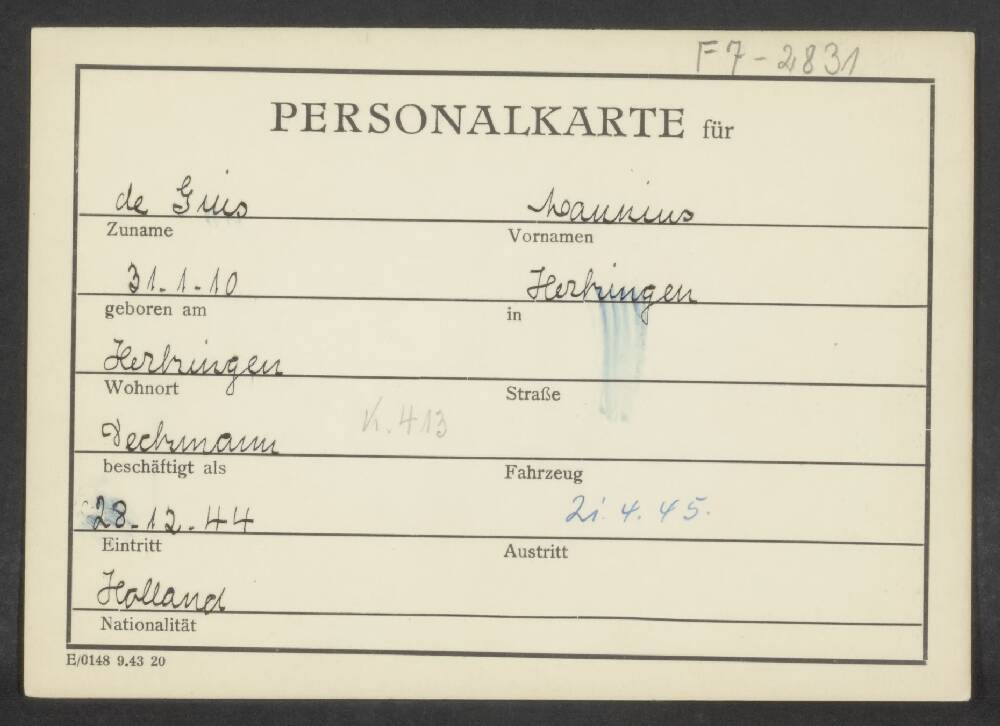 F7-2831
PERSONALKARTE für
de
Zuname
Vornamen
31.1.10
geboren am
in
Wohnort
Straße
K. 413
Deckmann
beschäftigt als
Fahrzeug
28.12.44
21.4.45.
Eintritt
Austritt
Holland
Nationalität
E/0148 9.43 20